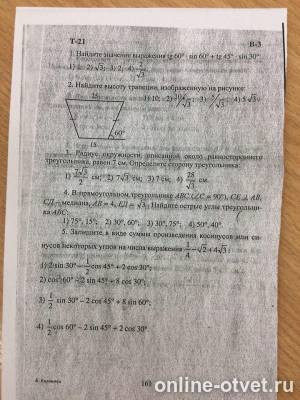 Т-21 В-3
1. Найдите значение выражения tg 60° · sin 60° + tg 45° · sin 30°.
2) √3; 3) 2; 4) 2/√3
2. Найдите высоту трапеции, изображенную на рисунке:
60°
3. Радиус окружности, описанной около равностороннего
треугольника, равен 7 см. Определите сторону треугольника.
1) 7√3/2 см; 2) 7√3 см; 3) 7 см; 4) 28/√3 см.
4. В прямоугольном треугольнике ABC (∠C = 90°),
медиана, AB = 4, √3. Найдите острые углы треугольни-
ка ABC:
1) 75°, 15°; 2) 30°, 60°; 3) 30°, 75°; 4) 50°, 40°.
5. Запишите в виде суммы произведения косинусов или си-
нусов некоторых углов на числа выражения 1/4 − √2 + 4√3:
1) 2 sin 30° − 1/2 cos 45° + 2 cos 30°;
2) cos² 60° − 2 sin 45° + 8 cos 30°;
3) 1/2 sin 30° − 2 cos 45° + 8 sin 60°;
4) 1/2 cos 60° − 2 sin 45° + 2 cos 30°.
online-otvet.ru